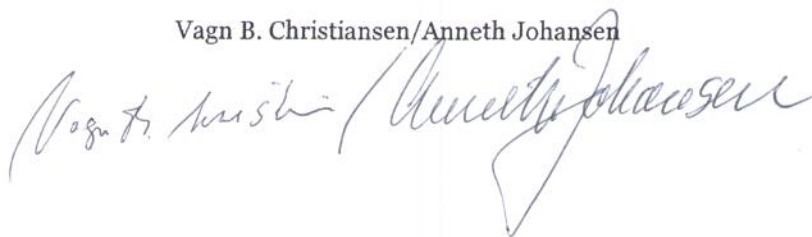 Vagn B. Christiansen/Anneth Johansen
Vagn B. / Anneth Johansen